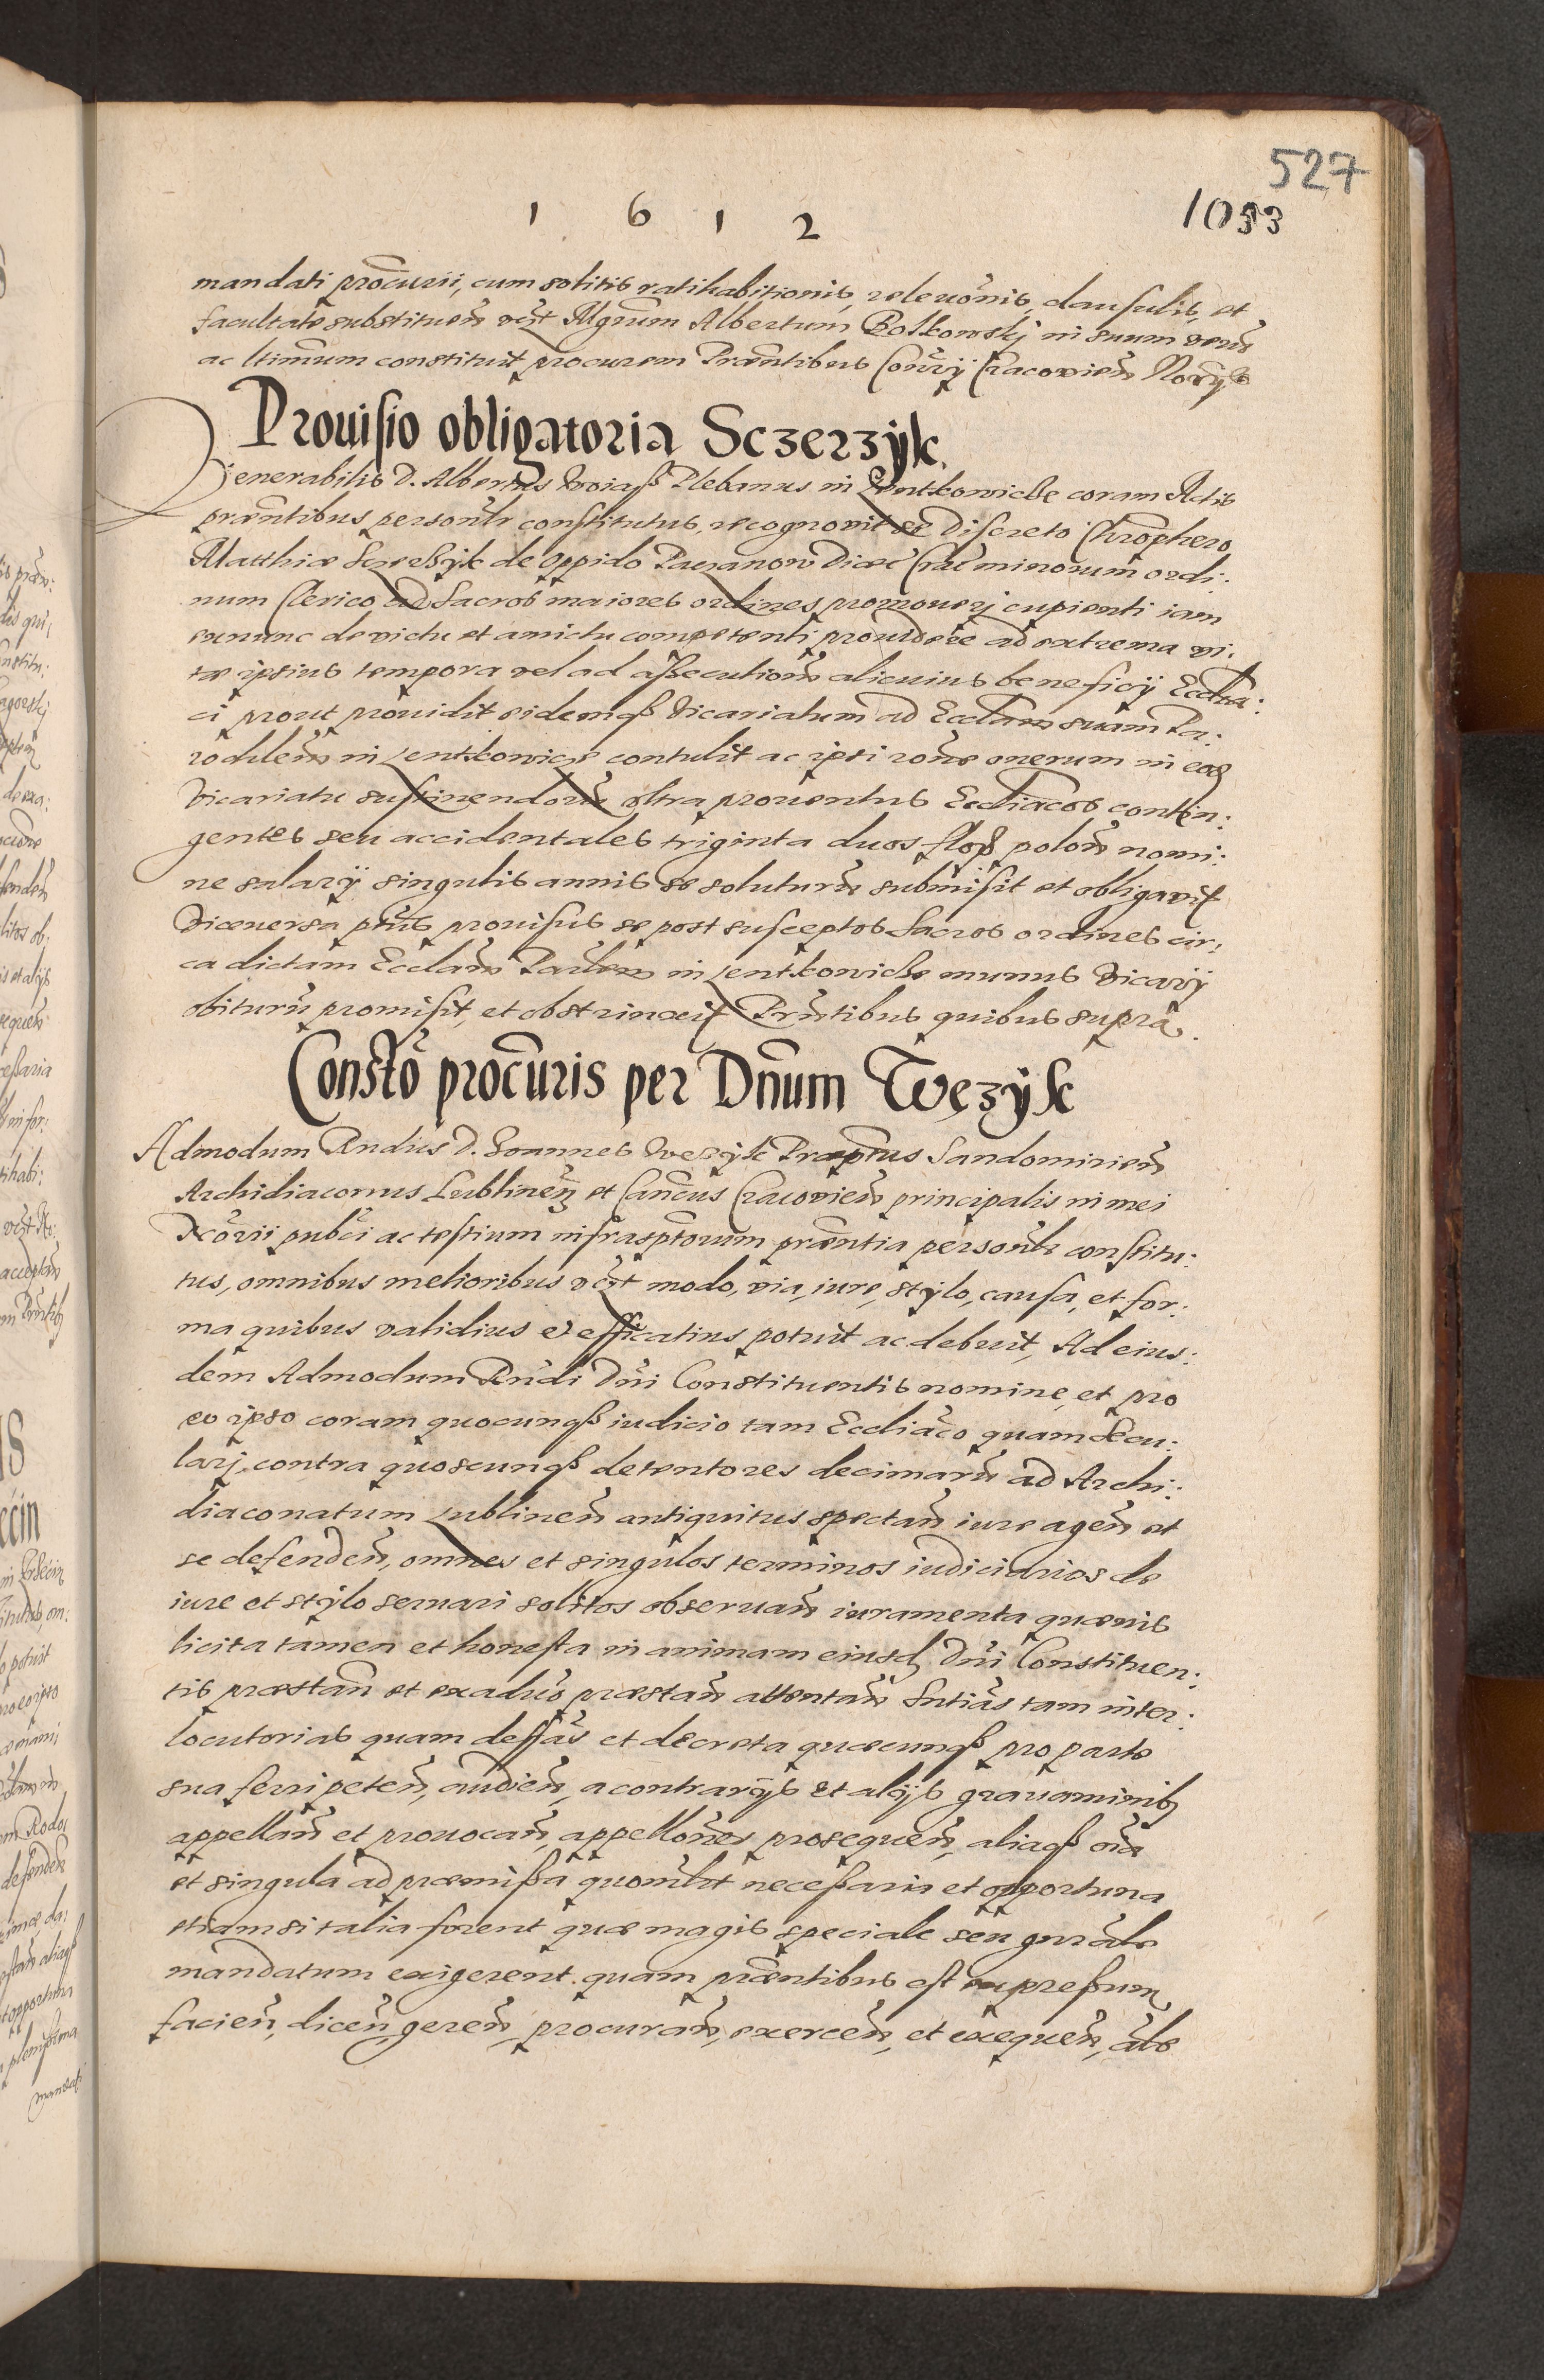 527
1 6 1 2
1053
mandati procurii, cum solitis ratihabitionis, releuonis, clausulis, et
facultate substituen vizt Mgrum Albertum Bolkowskj in suum verum
ac ltimum constituit procurem Præntibus Consrij Cracovien Norijs
Prouisio obligatoria Sczerzÿk.
Venerabilis D. Albertus Plebanus in coram Actis
præntibus personlr constitutus, recognovit se Discreto Chrophero
Matthiæ de Oppido Pacanow Diæc Crac minorum ordi:
num Clerico ad Sacros maiores ordines promouerj cupienti iam
exnunc de victu et amictu competenti prouidere ad extrema vi:
tæ ipsius tempora vel ad aßecutionem alicuius beneficij Eccltia:
ci prout prouidit eidemqß Vicariatum ad Ecclam suam Pa:
rochlem in contulit ac ipsi rone onerum in eod
Vicariatu sustinendorum vltra prouentus Eccliacos contin:
gentes seu accidentales triginta duos flos polon nomi:
ne salarij singulis annis se soluturum submisit et obligavit
Viceuersa ptus prouisus se post susceptos Sacros ordines cir:
ca dictam Ecclam Parlem in munus Vicarij
obiturum promisit, et obstrinxit Prntibus quibus supra.
Consto procuris per Dnum Węzyk
Admodum Rndus D. Joannes Węzyk Præptus Sandomirien
Archidiaconus Lublinen et Cancus Cracovien principalis in mei
Norii pubci ac testium infrasptorum præntia personlr constitu:
tus, omnibus melioribus vizt modo, via, iure, stylo, causa, et for:
ma quibus validius et efficatius potuit ac debuit, Ad eius:
dem Admodum Rndi Dni Constituentis nomine, et pro
eo ipso coram quocunqß iudicio tam Eccliaco quam Secu:
larj, contra quoscunqß detentores decimarum ad Archi:
diaconatum Lublinen antiquitus spectan iure agen et
se defenden, omnes et singulos terminos iudiciarios de
iure et stylo seruari solitos obseruan iuramenta quæuis
licita tamen et honesta in animam eiusd Dni Constituen:
tis præstan et ex aduso præstan attentan Sntias tam inter:
locutorias quam deffas et decreta quæcunqß pro parte
sua ferri peten, audien, a contrarijs et alijs grauaminibs
appellan et prouocan, appellones prosequen, aliaqß oia
et singula ad præmißa quomlt neceßaria et opportuna
etiamsi talia forent quæ magis speciale seu gnrale
mandatum exigerent quam præntibus est expreßum
facien, dicen, geren, procuran, exercen, et exequen, ale